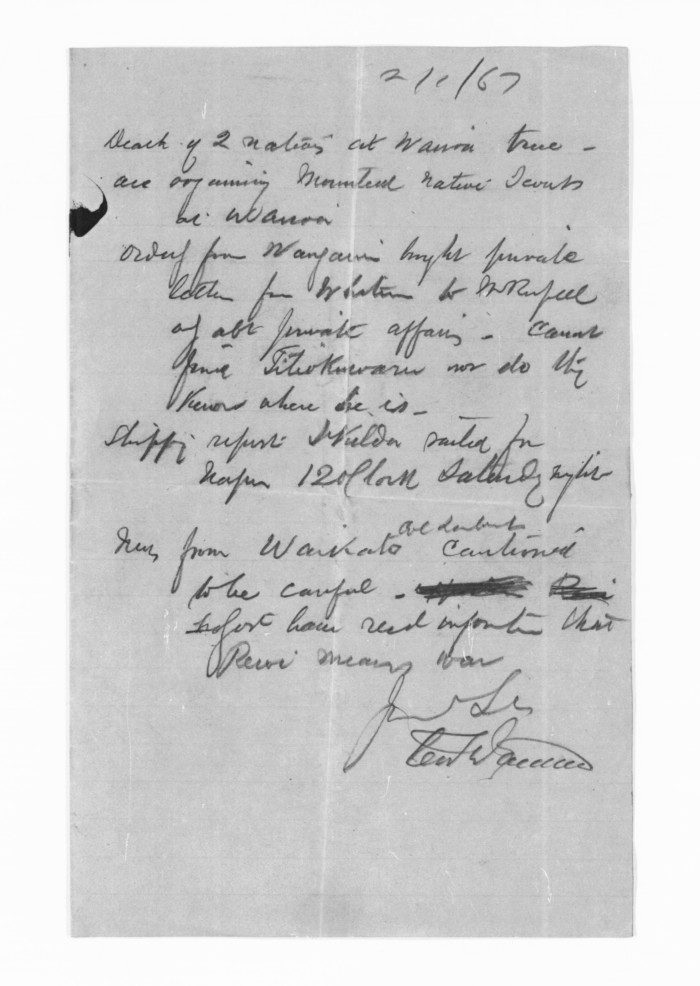 2/1/67
Death of 2 natives at Wairoa true –
are organising Mounted Native Scouts
at Wairoa
from Wanganui private
letter from to W Russell
abt private affairs – Cannot
find Titokuwaru nor do they
know where he is –
Shipping report St Kilda sailed for
Napier 12 o'Clock Saturday night
News from Waikato Cautioned
to be careful –
Govt have recd information that
Rewi means war